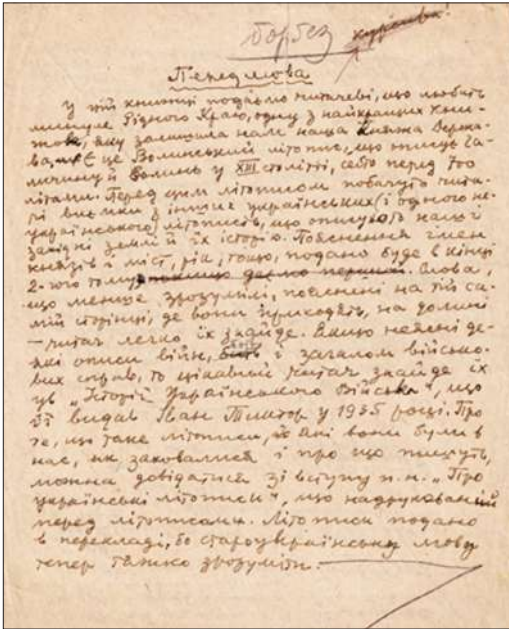 боргез курсива!
Передмова
У цій книжці подаємо читачеві, що любить
минуле Рідного Краю, одну з найкращих книи-
жок, яку залишила нам наша Княжа Держа-
ва. Є це Волинський літопис, що описує Га-
личину й Волинь у XIII столітті, себто перед 700
літами. Перед цим літописом побачить чита-
чі виїмки з інших українських (і одного не-
українського) літописів, що описують наші
західні землі й їх історію. Пояснення імен
князів і міст, рік, тощо, подано буде в кінці
2-ого тому. Слова,
що менше зрозумілі, пояснені на тій са-
мій сторінці, де вони приходять, на долині
— читач легко їх знайде. Якщо неясні де-
які описи війн, боїв і загалом військо-
вих справ, то цікавий читач знайде їх
у „Історії Українського Війська", що
її видав Іван Тиктор у 1935 році. Про
те, що таке літописи, й які вони були в
нас, як заховалися і про що пишуть,
можна довідатися зі вступу п.н. „Про
українські літописи", що надрукований
перед літописами. Літописи подано
в перекладі, бо староукраїнську мову
тепер тяжко зрозуміти.